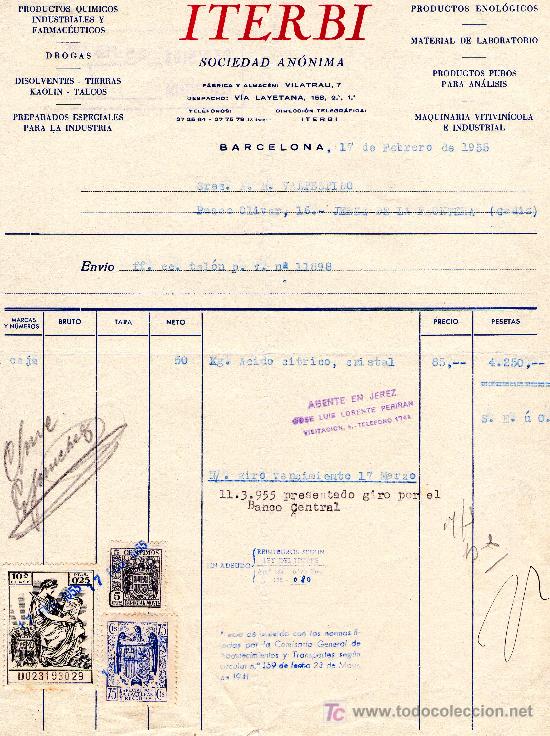 PRODUCTOS QUIMICOS
INDUSTRIALES Y
FARMACÉUTICOS
DROGAS
DISOLVENTES - TIERRAS
KAOLIN - TALCOS
PREPARADOS ESPECIALES
PARA LA INDUSTRIA
ITERBI
SOCIEDAD ANÓNIMA
FÁBRICA Y ALMACÉN: VILATRAU, 7
DESPACHO: VÍA LAYETANA, 158, 2.º, 1.ª
TELÉFONOS: DIRECCIÓN TELEGRÁFICA:
ITERBI
PRODUCTOS ENOLÓGICOS
MATERIAL DE LABORATORIO
PRODUCTOS PUROS
PARA ANÁLISIS
MAQUINARIA VITIVINÍCOLA
E INDUSTRIAL
BARCELONA, 17 de Febrero de 1955
Sres. VALDESPINO
Banco Oliver, 16.- JEREZ DE LA FRONTERA (Cadiz)
Envío ff. cc. talón p. v. nª 11898
MARCAS
Y NÚMEROS BRUTO TARA NETO PRECIO PESETAS
caja 50 Kg. Acido cítrico, cristal 85,-- 4.250,--
AGENTE EN JEREZ
JOSE LUIS LORENTE PERIÑAN
VISITACION, TELEFONO
S. E. ú O.
N/. giro vencimiento 17 Marzo
11.3.955 presentado giro por el
Banco Central
REINTEGROS SEGUN
LEY DEL TIMBRE
ADEUDO
10ª CLASE 0'25
0023193029
5 CENTIMOS 5
ESPECIAL MOVIL
75 cts
de acuerdo con las normas
dadas por la Comisaría General de
Abastecimientos y Transportes según
circular n.º 159 de fecha 23 de
de 1941
TC www.todocoleccion.net